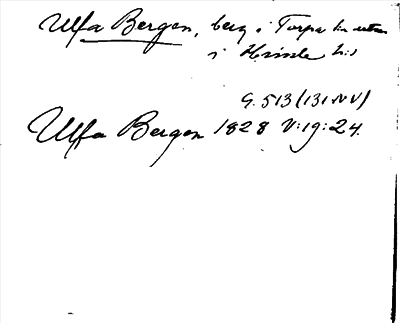 Ulfa Bergen, berg i Torpa
i
G. 513 (131 NV)
Ulfa Bergen 1828 V:19:24.